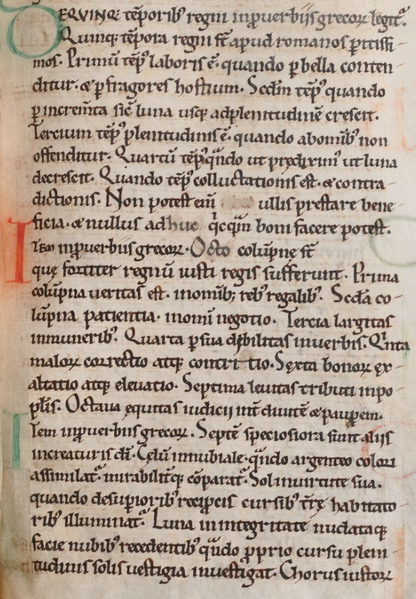 DE QVINQ; tēporib' regni inpuerbiis grecoꝝ legit᷑.
Quinq; tēpora regni st̄ apud romanos ptissi-
mos. Primū tēp' laboris ē. quando p bella conten-
ditur. & p fragores hostium. Sed̄m tēp' quando
p increm̄ta sic̄ luna usq; adplenitudinē crescit.
Tercium tēp' plenitudinis ē. quando abomib' non
offenditur. Quartū tēp' qn̄do ut prediximꝰ ut luna
decrescit. Quando tēp' colluctationis est. & contra-
dictionis. Non potest eni ullis prestare bene-
ficia. & nullus adhuc ei qicqm boni facere potest.
Item inpuerbiis grecoꝝ. Octo colūpne st̄
que fortiter regnū iusti regis sufferunt. Prima
colūpna ueritas est. inomīb; reb' regalib'. Sed̄a co-
lūpna patientia. inomi negotio. Tercia largitas
inmunerib'. Quarta psuadibilitas inuerbis. Qīnta
maloꝝ correctio atq; contritio. Sexta bonoꝝ ex-
altatio atq; eleuatio. Septima leuitas tributi inpo-
plīs. Octaua equitas iudicii int̄ diuitē & paupem.
Item inpuerbiis grecoꝝ. Septē speciosiora sunt aliis
increaturis dī. Celū innubiale. qn̄do argenteo colori
assimilat᷑. mirabilit̄q; cōparat᷑. Sol inuirtute sua.
quando desupiorib' recipeis cursib' t̄re habitato-
rib' illuminat᷑. Luna inintegritate nudataq;
facie nubib' recedentib' qn̄do pprio cursu pleni-
tudinis solis uestigia inuestigat. Chorus iustoꝝ